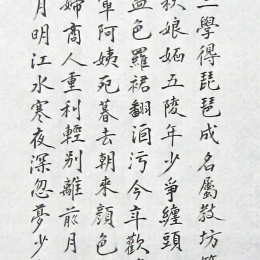 三學得琵琶成名屬教坊第
秋娘妬五陵年少爭纏頭
血色羅裙翻酒污今年歡
軍阿姨死暮去朝來顏色
婦商人重利輕別離前月
月明江水寒夜深忽夢少